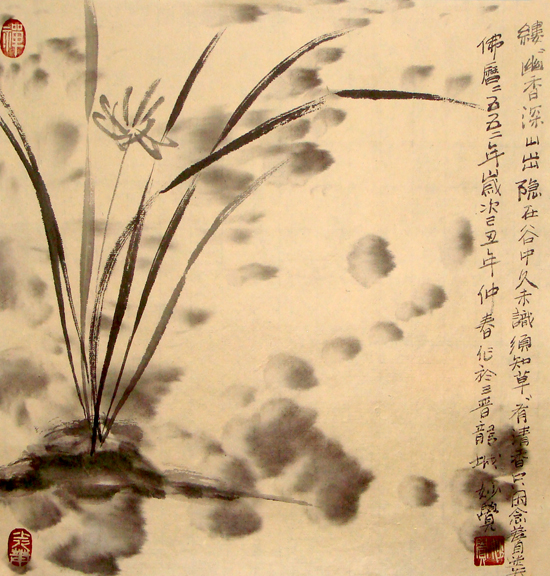 縷〻幽香深山出隐在谷中久未識須知草〻有清香只因念
佛曆二五五二年歲次己丑年仲春作於三晋龍城妙覺
禪